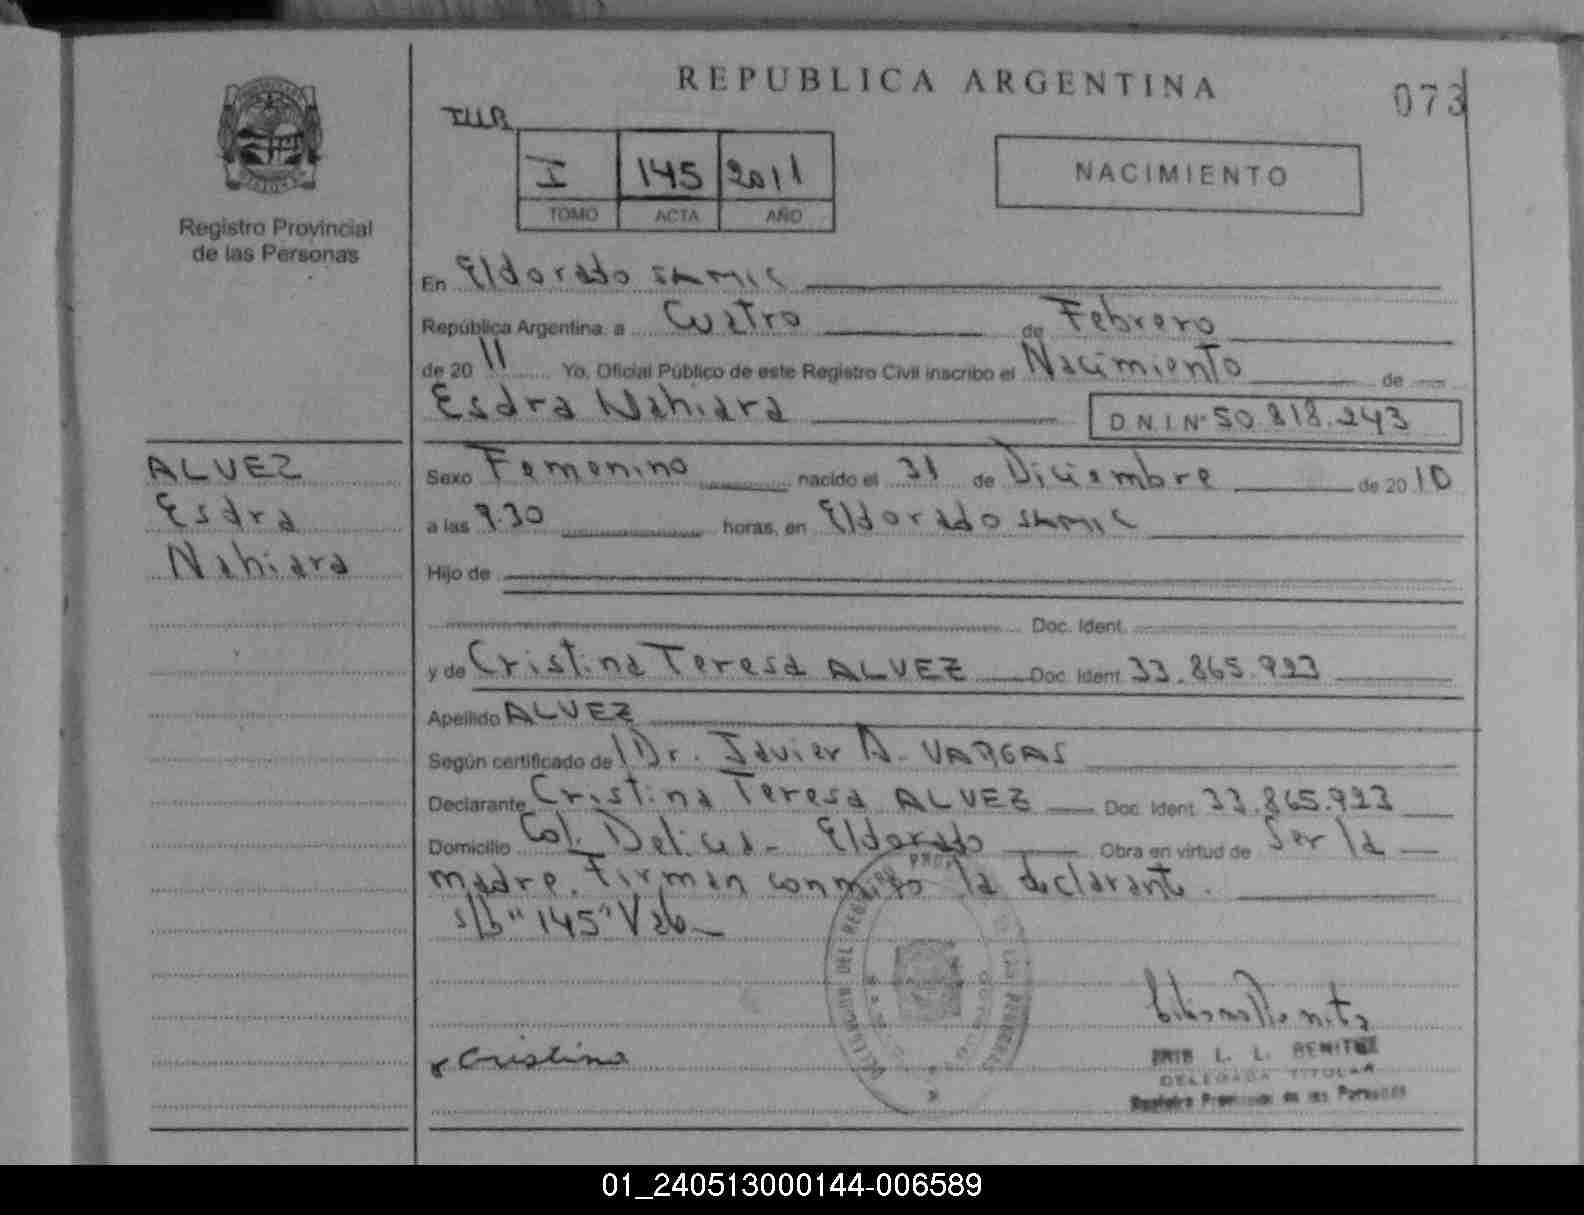 REPUBLICA ARGENTINA
073
I 145 2011
TOMO ACTA AÑO
NACIMIENTO
Registro Provincial
de las Personas
En Eldorado SAMIC
República Argentina, a Cuatro de Febrero
de 20 11 Yo, Oficial Público de este Registro Civil inscribo el Nacimiento de
Esdra Nahiara D.N.I Nº 50.818.243
ALVEZ
Esdra
Nahiara
Sexo Femenino nacido el 31 de Diciembre de 20 10
a las 9.30 horas, en Eldorado SAMIC
Hijo de
Doc. Ident.
y de Cristina Teresa ALVEZ Doc. Ident. 33.865.923
Apellido ALVEZ
Según certificado de Dr. Javier A. VARGAS
Declarante Cristina Teresa ALVEZ Doc. Ident. 33.865.923
Domicilio Col. Delicia - Eldorado Obra en virtud de Ser la
madre. Firman conmigo la declarante.
s/b "145" Vale
Cristina
L. L. BENITEZ
DELEGADA TITULAR
Registro Provincial de las Personas
01_240513000144-006589